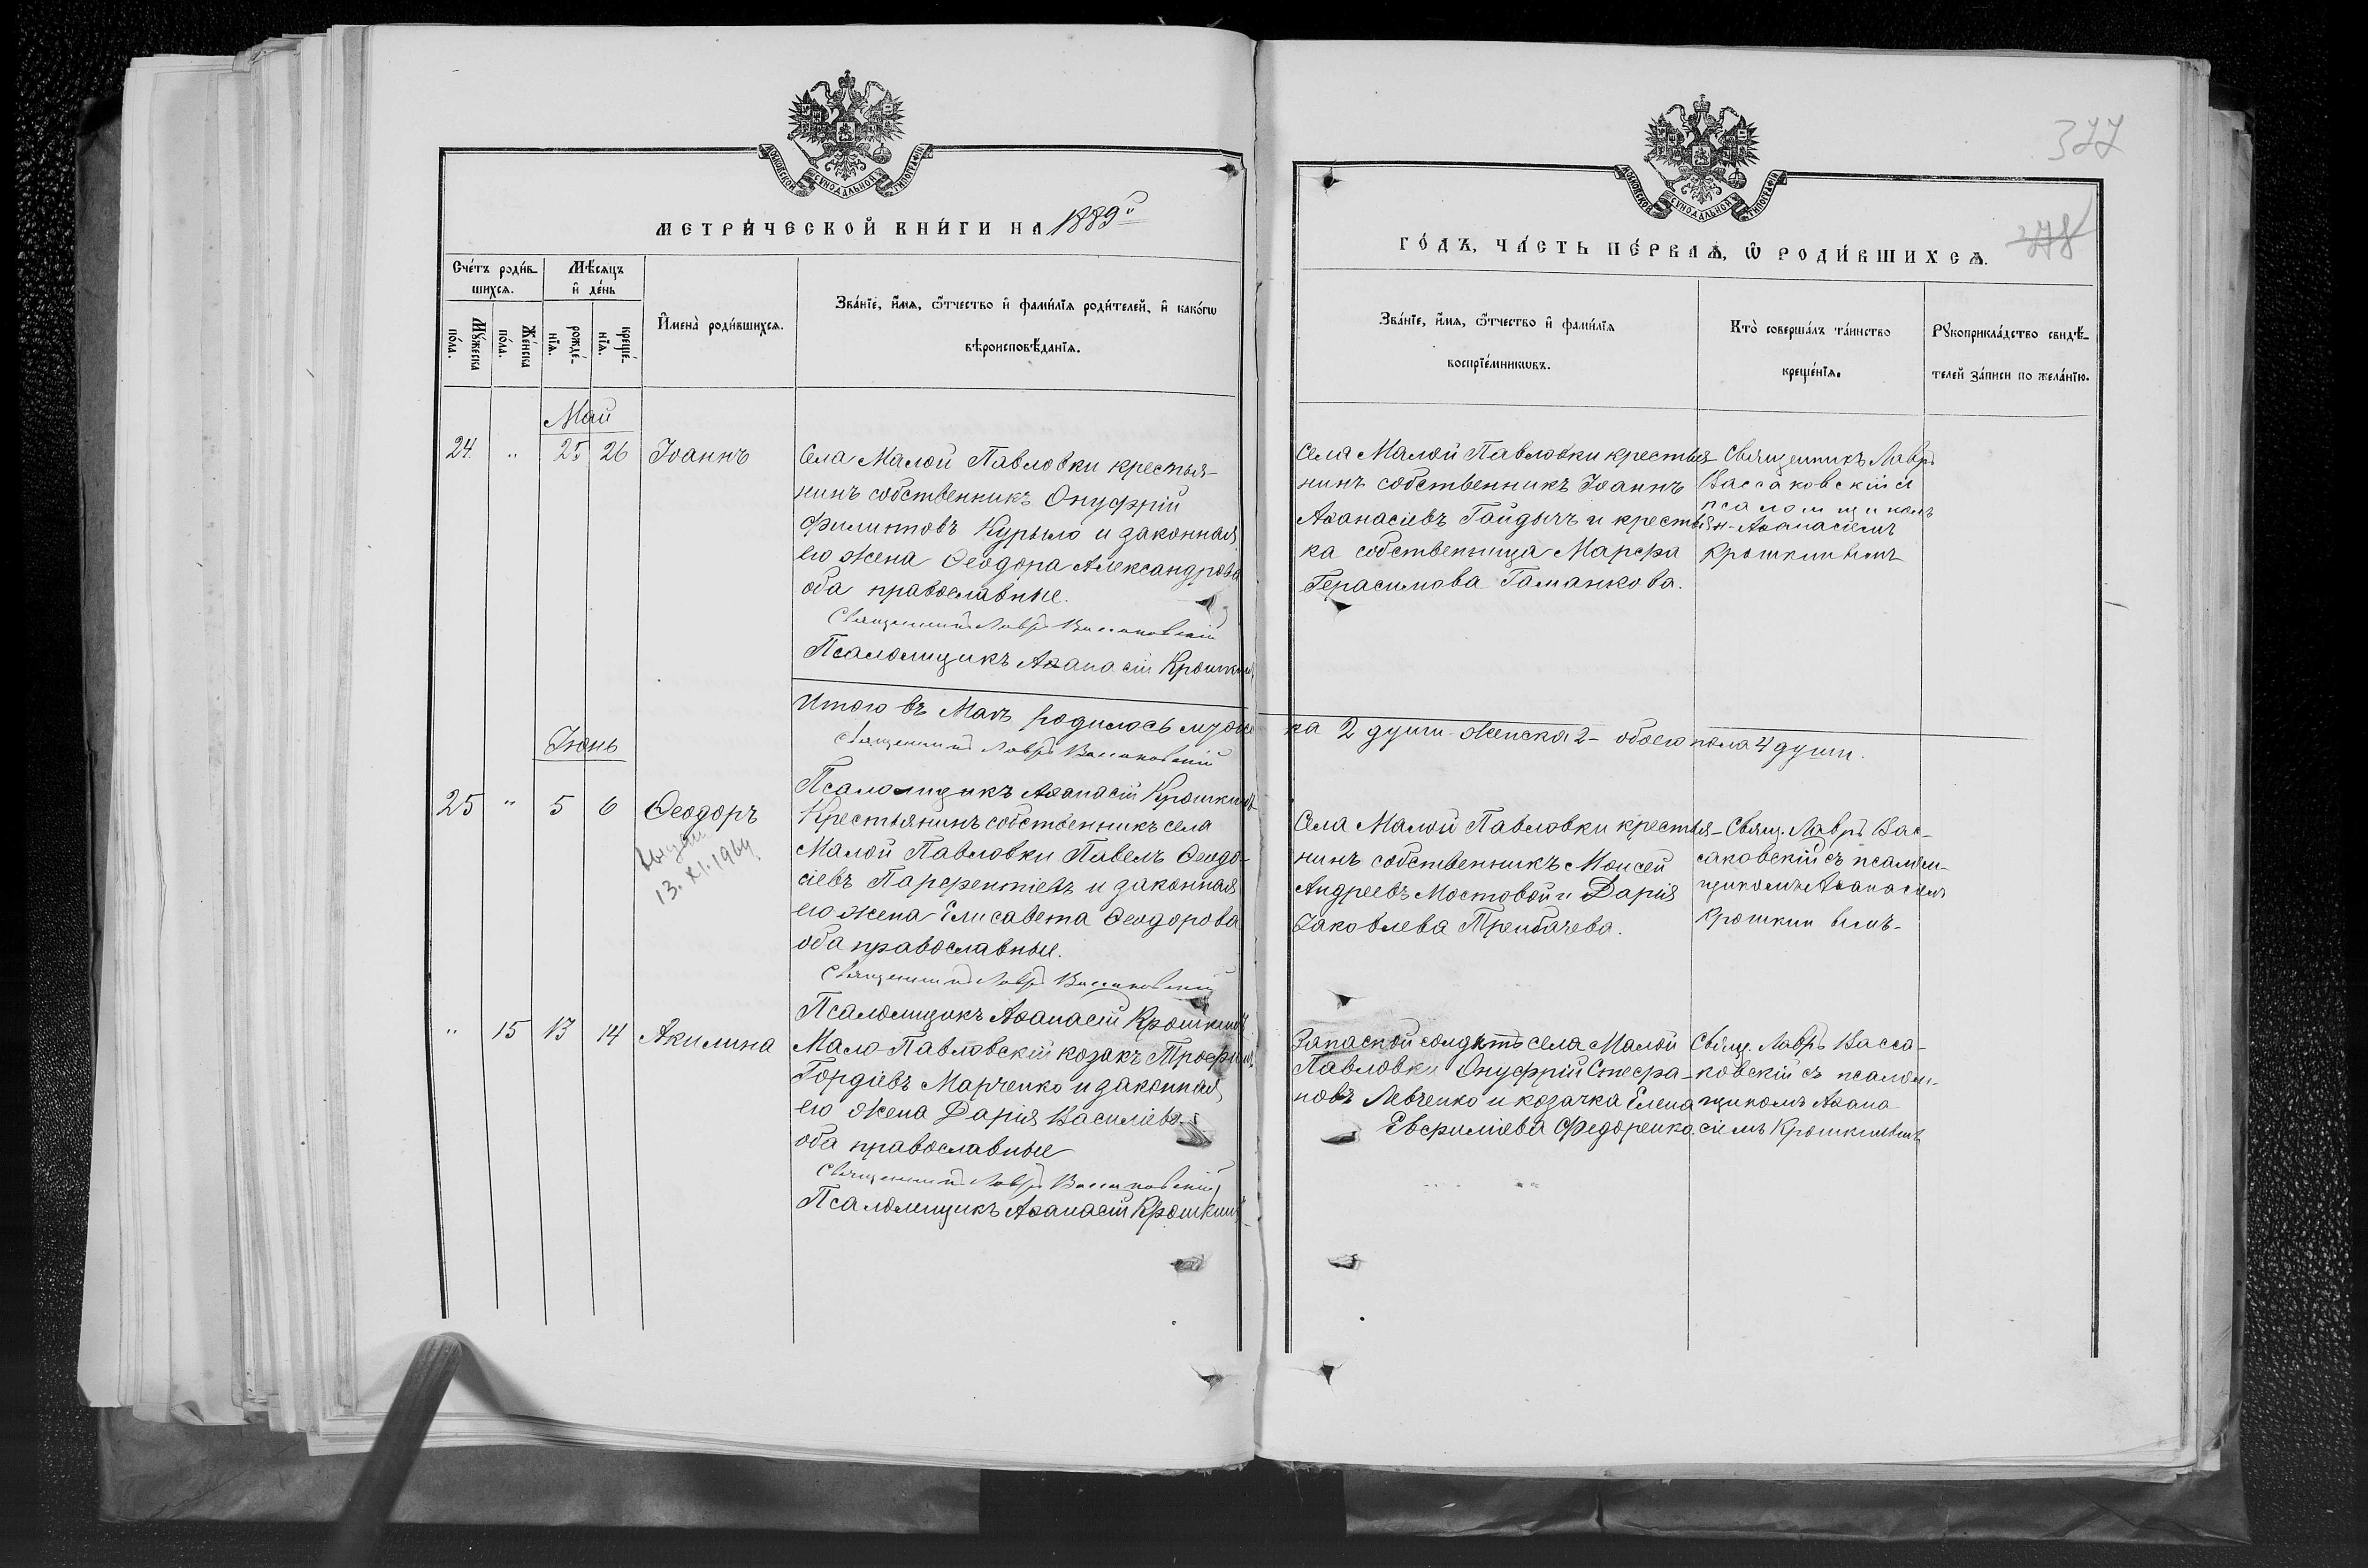 МОСКОВСКОЙ СѴНОДАЛЬНОЙ ТИПОГРАФІИ
МЕТРИ́ЧЕСКОЙ КНИ́ГИ НА 1889й
Сче́тъ роди́в-
шихсѧ.
Мѣ́сѧцъ
и҆ де́нь
Мꙋ́жеска
по́ла.
Же́нска
по́ла.
рожде́-
нїѧ.
креще́-
нїѧ.
И҆мена̀ роди́вшихсѧ.
Зва́нїе, и҆́мѧ, ѻ҆́тчество и҆ фами́лїѧ роди́телей, и҆ како́гѡ
вѣроисповѣ́данїѧ.
Май
24 " 25 26 Іоаннъ
Села Малой Павловки крестья-
нинъ собственникъ Онуфрій
Филипповъ Курыло и законная
его жена Ѳеодора Александрова
оба православные.
Священникъ Лавръ Вассаковскій
Псаломщикъ Аѳанасій Крошкинъ
Итого въ Маѣ родилось муже
Священникъ Лавръ Вассаковскій
Псаломщикъ Аѳанасій Крошкинъ
Іюнь
25 " 5 6 Ѳеодоръ
13.XI.1964
Крестьянинъ собственникъ села
Малой Павловки Павелъ Ѳеодо-
сіевъ Парфентіевъ и законная
его жена Елисавета Ѳеодорова
оба православные.
Священникъ Лавръ Вассаковскій
Псаломщикъ Аѳанасій Крошкинъ
" 15 13 14 Акилина
Мало-Павловскій козакъ Трофимъ
Гордіевъ Марченко и законная
его жена Дарія Василіева
оба православные
Священникъ Лавръ Вассаковскій
Псаломщикъ Аѳанасій Крошкинъ
377
378
МОСКОВСКОЙ СѴНОДАЛЬНОЙ ТИПОГРАФІИ
ГО́ДЪ, ЧА́СТЬ ПЕ́РВАѦ, Ѡ҆ РОДИ́ВШИХСѦ.
Зва́нїе, и҆́мѧ, ѻ҆́тчество и҆ фами́лїѧ
воспрїе́мникѡвъ.
Кто̀ соверша́лъ та́инство
креще́нїѧ.
Рꙋкоприкла́дство свидѣ́-
телей за́писи по жела́нїю.
Села Малой Павловки крестья-
нинъ собственникъ Іоаннъ
Аѳанасіевъ Гайдычъ и крестьян-
ка собственница Марфа
Герасимова Гаманкова.
Священникъ Лавръ
Вассаковскій съ
псаломщикомъ
Аѳанасіемъ
Крошкинымъ
ка 2 души женска 2 - обоего пола 4 души.
Села Малой Павловки крестья-
нинъ собственникъ Моисей
Андреевъ Мостовой и Дарія
Іаковлева Трембачева.
Свящ. Лавръ Вас-
саковскій съ псалом-
щикомъ Аѳанасіемъ
Крошкинымъ-
Запаской солдатъ села Малой
Павловки Онуфрій Стефа-
новъ Левченко и козачка Елена
Евфиміева Федоренко.
Свящ. Лавръ Васса-
ковскій съ псалом-
щикомъ Аѳана
сіемъ Крошкинымъ